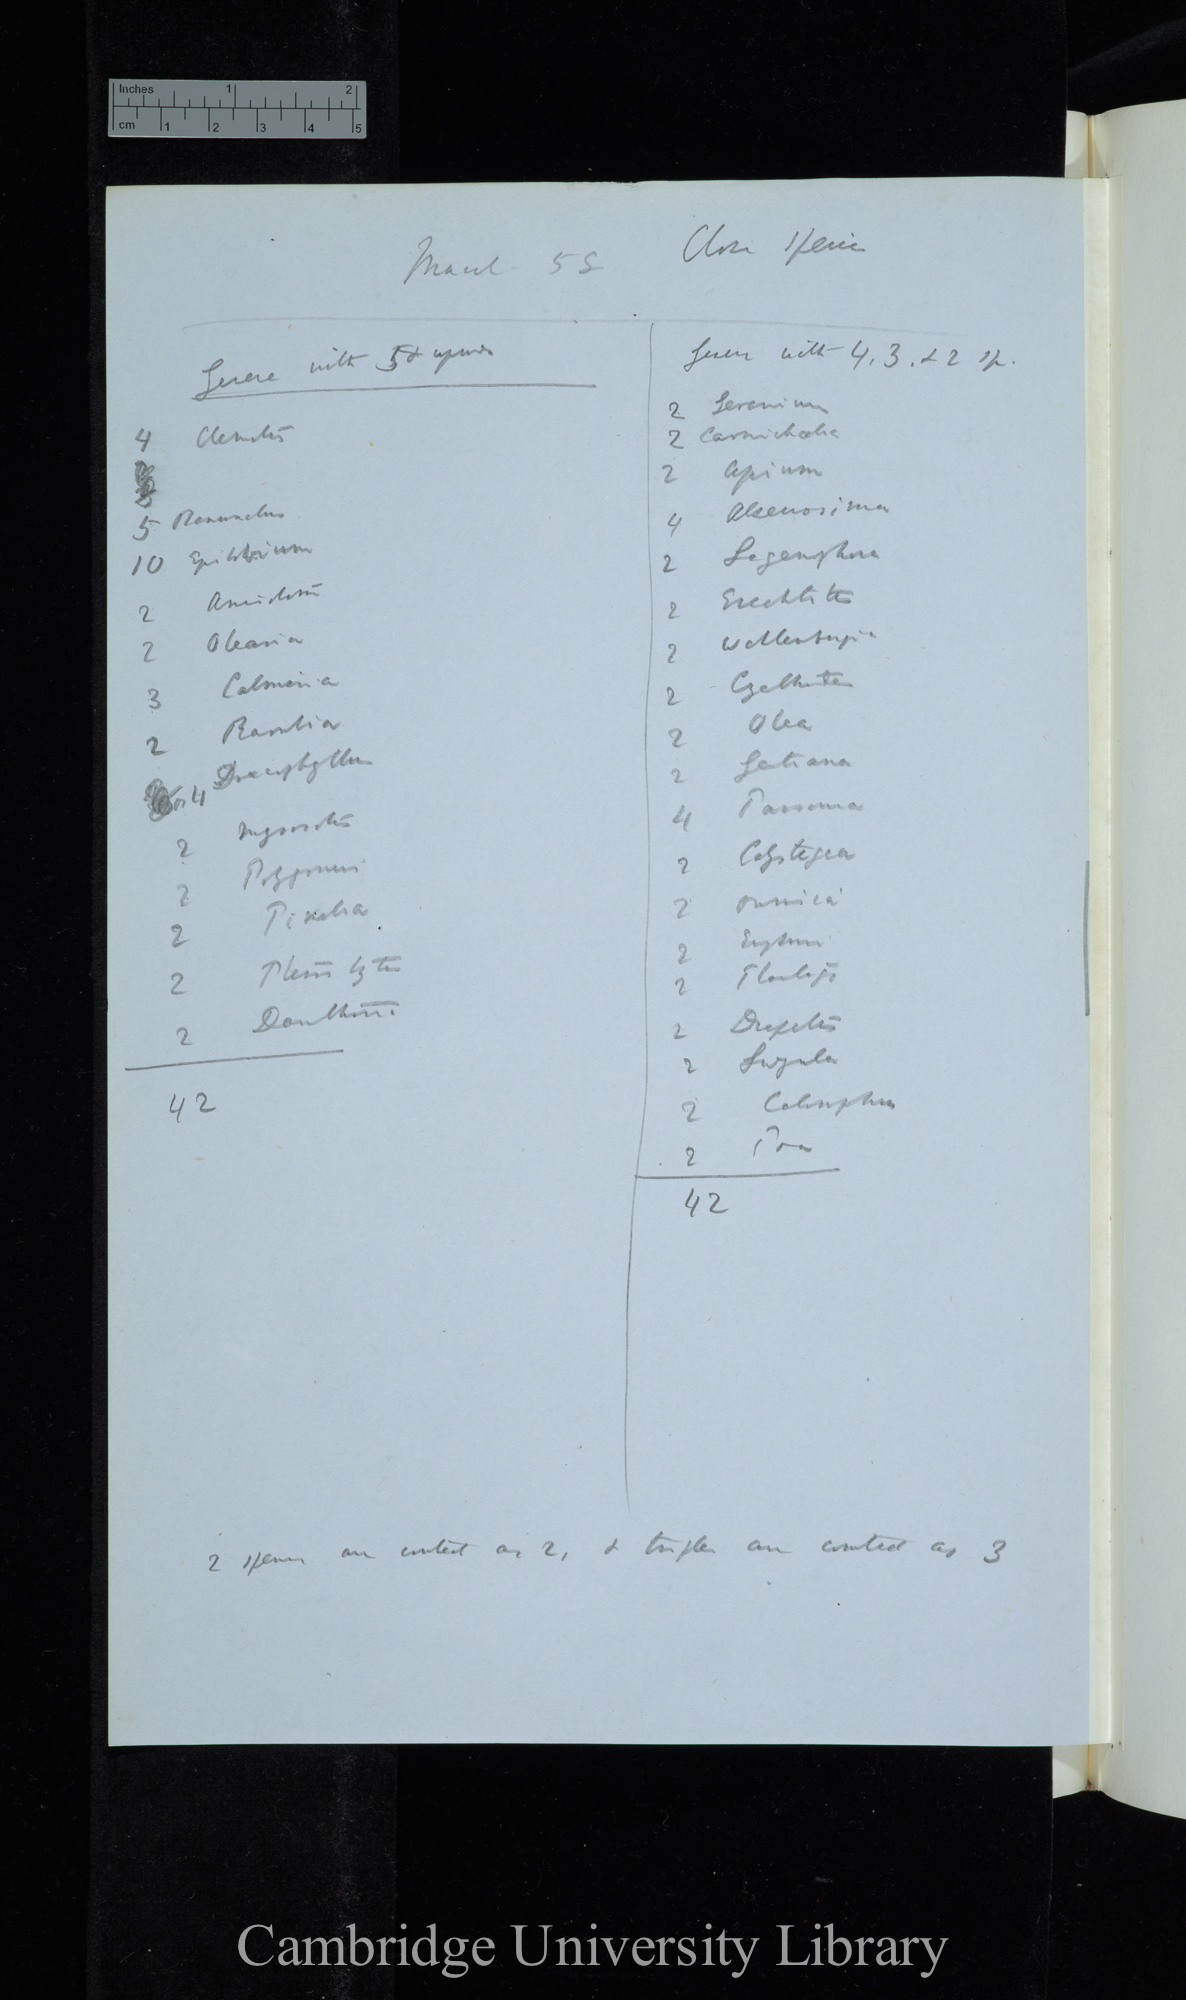 Inches 1 2
cm 1 2 3 4 5
March 55
Close species
Genera with 5 & upwards
4 Clematis
5 Ranunculus
10 Epilobium
2
2 Olearia
3 Celmisia
2 Raoulia
or 4 Dracophyllum
2 Myosotis
2 Polygonum
2 Pimelea
2
2 Danthonia
42
Genera with 4, 3, & 2 sp.
2 Geranium
2 Carmichaelia
2 Apium
4 Alseuosmia
2 Lagenophora
2 Erechtites
2 Wahlenbergia
2
2 Olea
2 Gentiana
4 Parsonsia
2 Calystegia
2
2
2 Plantago
2 Drapetes
2 Luzula
2
2 Poa
42
2 species are counted as 2, & triples are counted as 3
Cambridge University Library